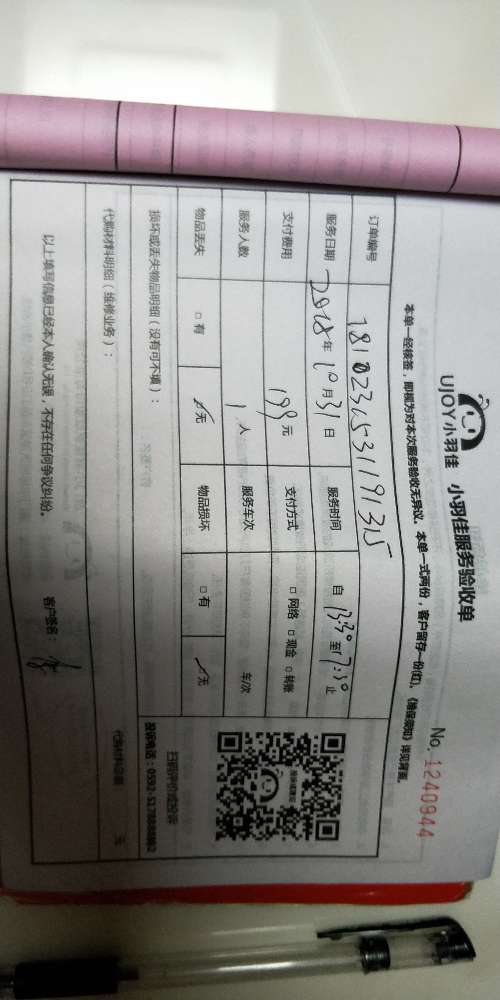 UJOY小羽佳 小羽佳服务验收单
No. 1240944
本单一经核签，即视为对本次服务验收无异议。本单一式两份，客户留存一份(红)。《维保须知》详见背面。
订单编号
服务日期 2018年10月31日 服务时间 自 13:30 至 17:30 止
支付费用 199元 支付方式 □ 网络 □ 现金 □ 转账
服务人数 1人 服务车次 车/次
物品丢失 □ 有 ✓无 物品损坏 □ 有 ✓无
损坏或丢失物品明细（没有可不填）：
扫码评价或投诉
代购材料明细（维修业务）：
以上填写信息已经本人确认无误，不存在任何争议纠纷。 客户签名：